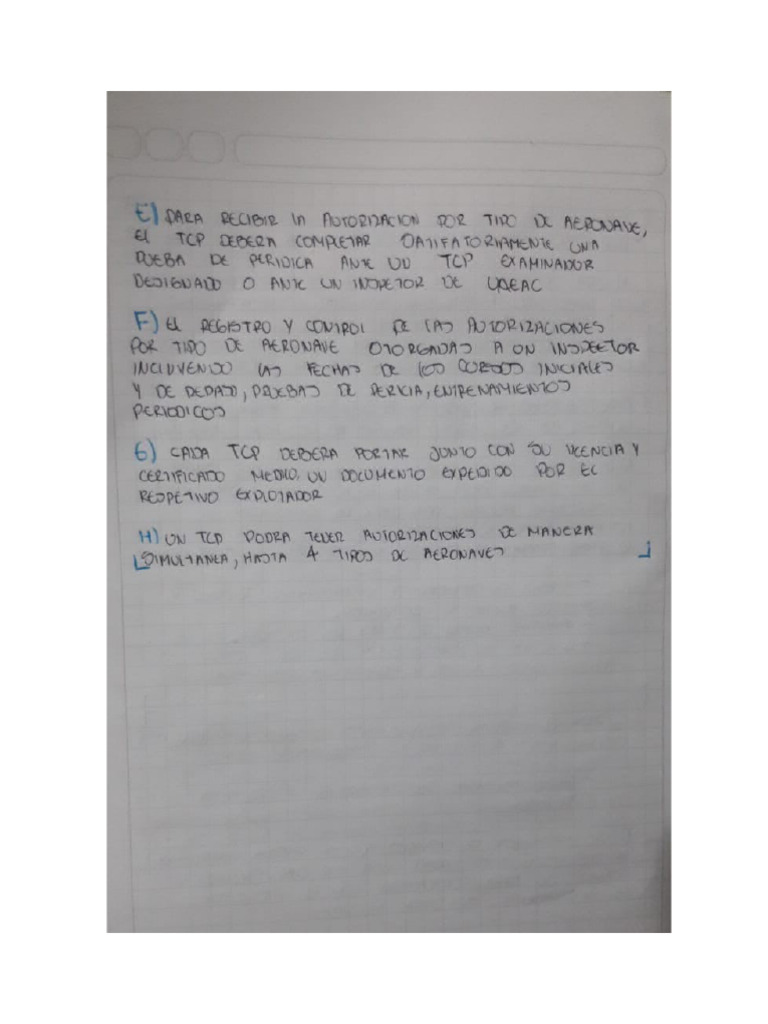 E) PARA RECIBIR LA AUTORIZACION POR TIPO DE AERONAVE,
EL TCP DEBERA COMPLETAR SATIFATORIAMENTE UNA
PUEBA DE PERIDICA ANTE UN TCP EXAMINADOR
DESIGNADO O ANTE UN INSPETOR DE UAEAC
F) EL REGISTRO Y CONTROL DE LAS AUTORIZACIONES
POR TIPO DE AERONAVE OTORGADAS A UN INSPECTOR
INCLUYENDO LAS FECHAS DE LOS CURSOS INICIALES
Y DE REPASO, PRUEBAS DE PERICIA, ENTRENAMIENTOS
PERIODICOS
G) CADA TCP DEBERA PORTAR JUNTO CON SU LICENCIA Y
CERTIFICADO MEDICO, UN DOCUMENTO EXPEDIDO POR EL
RESPETIVO EXPLOTADOR
H) UN TCP PODRA TENER AUTORIZACIONES DE MANERA
SIMULTANEA, HASTA 4 TIPOS DE AERONAVES